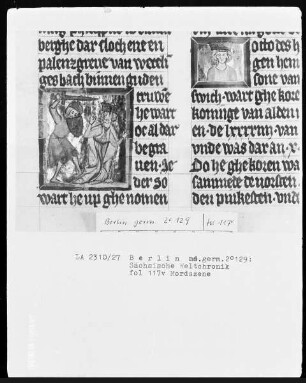 berghe dar sloch ene en
palenzgreve van weteli
ges bach binnen guden
eru we
he wart
oc al dar
begra
uen. Se
der So
wart he up ghe nomen
octo des h
gen hein
sone van
swich. wart ghe kore
koningt van alden
en. de lxxxxiiij. van
vnde was dar an. x.
Do he ghe koren wa
sammete de vorsten.
den pinkesten. vnde
Berlin germ. 2° 129
fo. 117v
LA 2310/27 Berlin md.germ.2°129:
Sächsische Weltchronik
fol 117v Mordszene